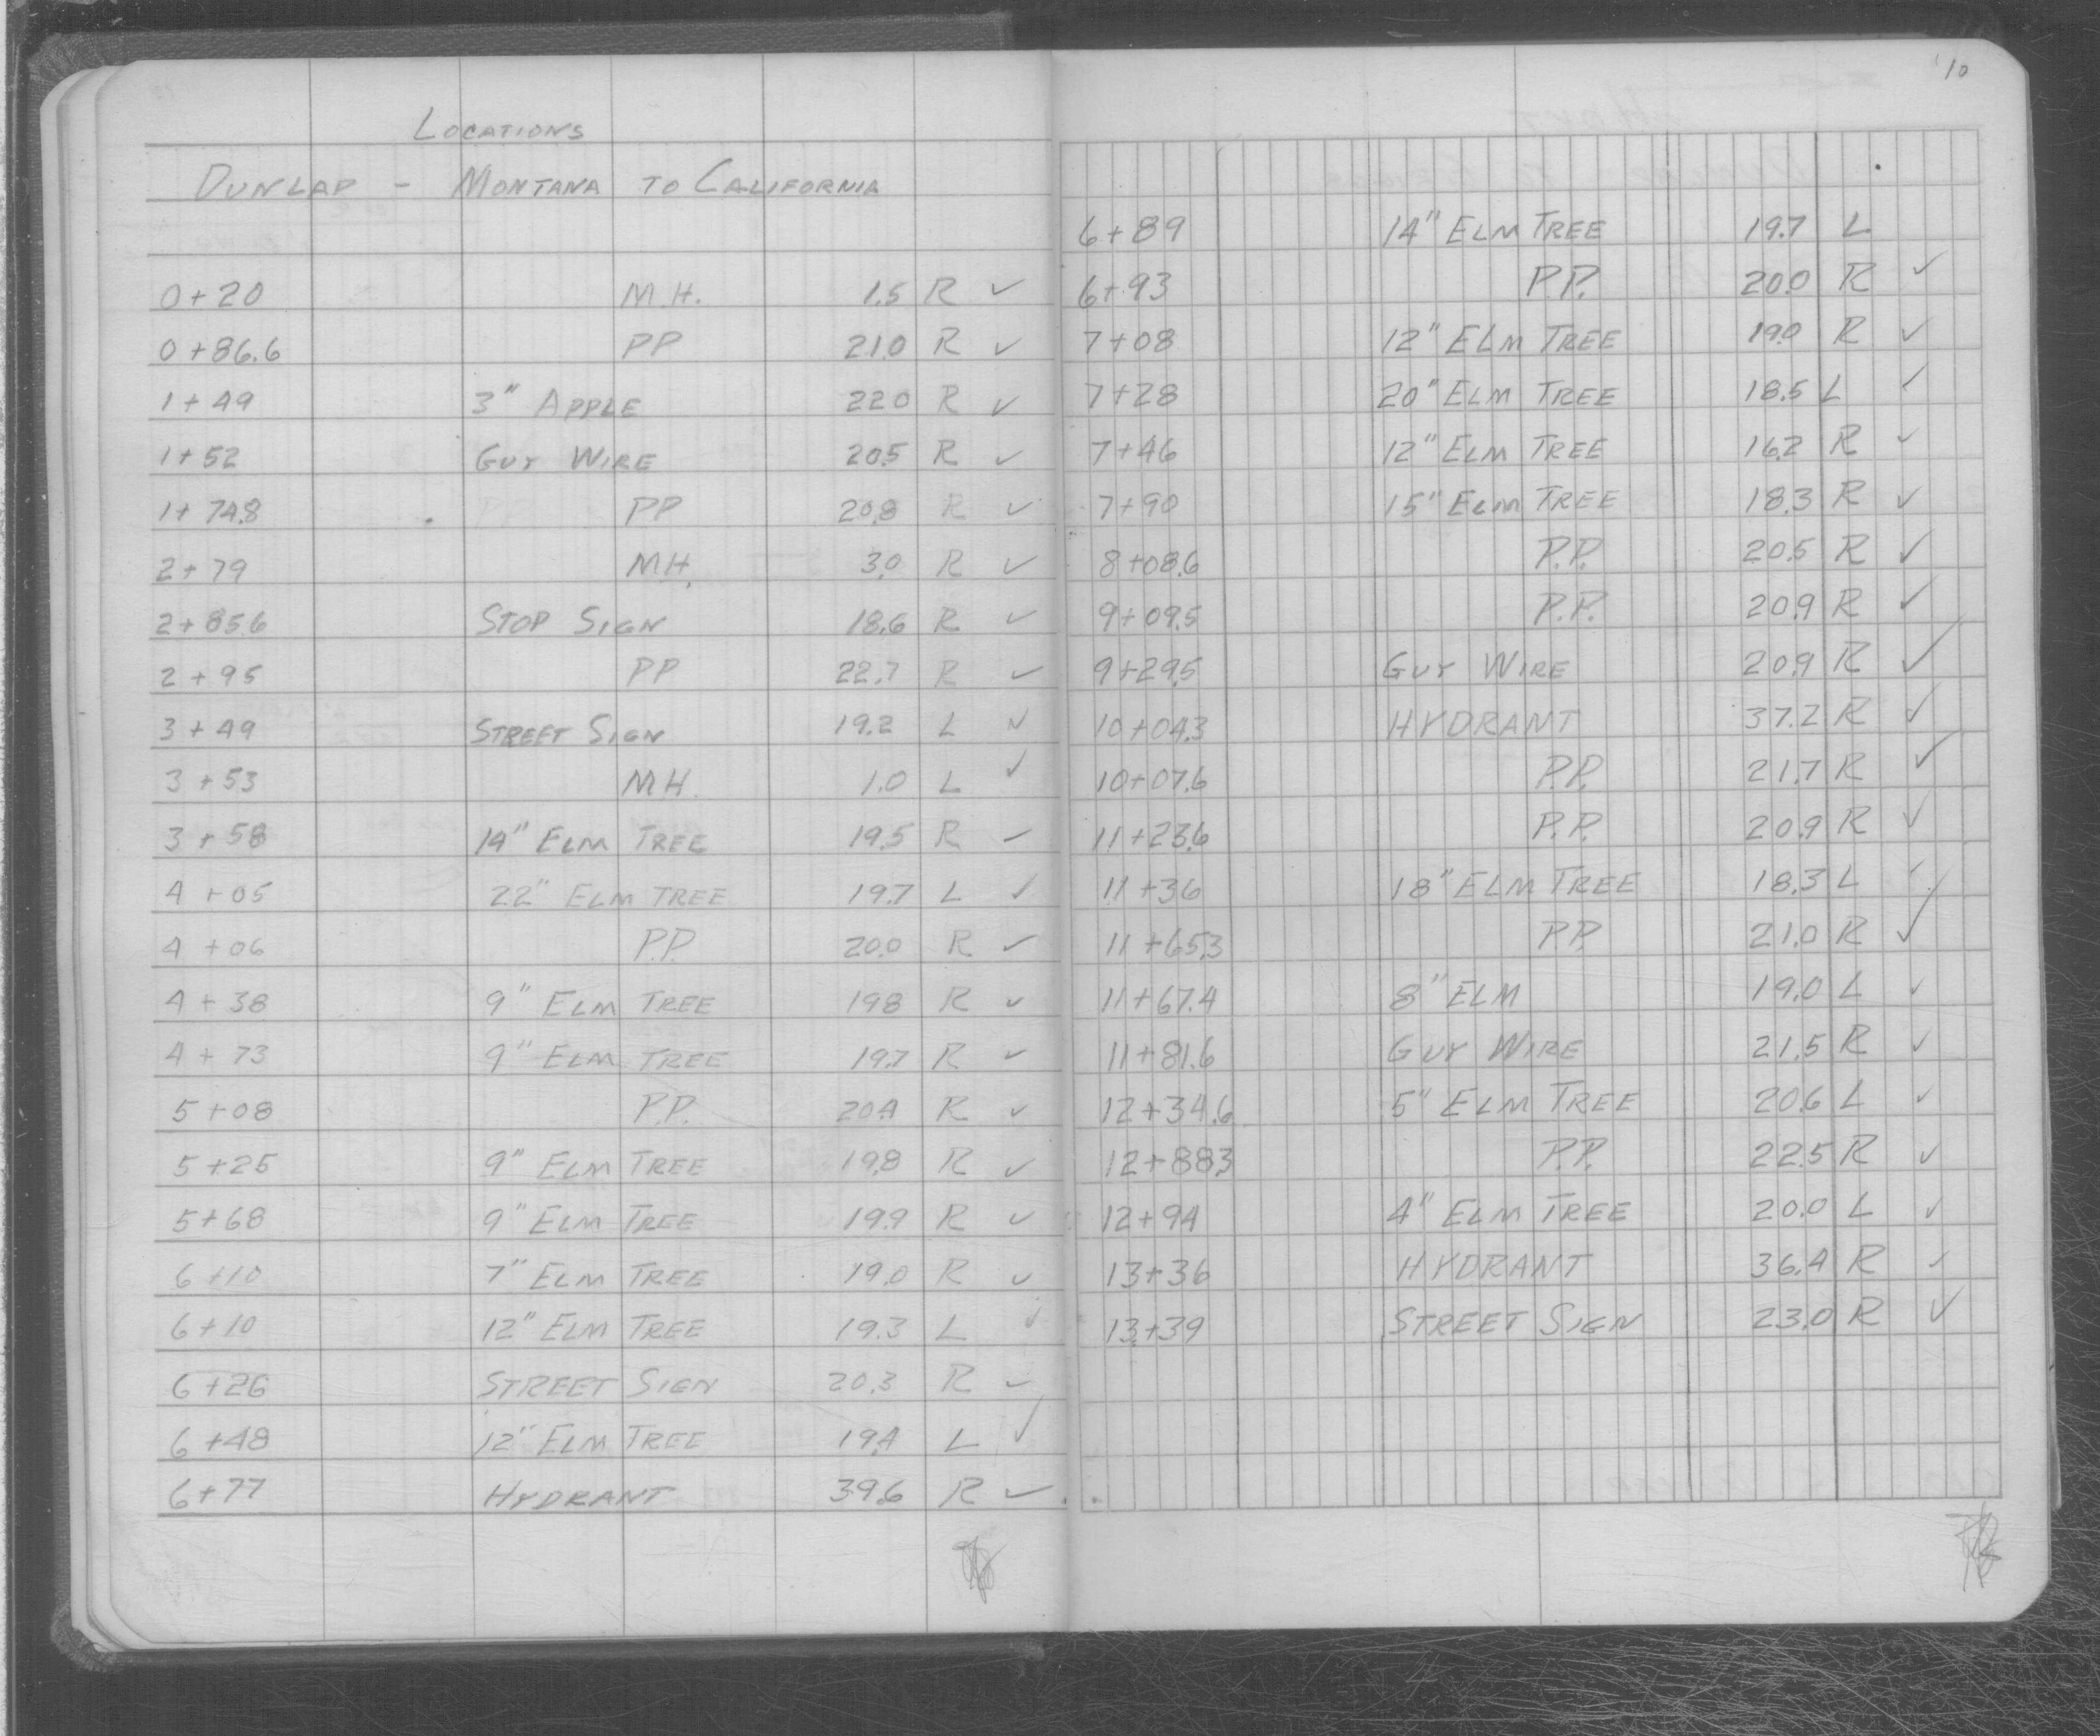 10
LOCATIONS
DUNLAP - MONTANA TO CALIFORNIA
0+20 M.H. 1.5 R ✓
0+86.6 PP 21.0 R ✓
1+49 3" APPLE 22.0 R ✓
1+52 GUY WIRE 20.5 R ✓
1+74.8 PP 20.8 R ✓
2+79 M.H. 3.0 R ✓
2+85.6 STOP SIGN 18.6 R ✓
2+95 PP 22.7 R ✓
3+49 STREET SIGN 19.2 L ✓
3+53 M.H. 1.0 L ✓
3+58 14" ELM TREE 19.5 R ✓
4+05 22" ELM TREE 19.7 L ✓
4+06 P.P. 20.0 R ✓
4+38 9" ELM TREE 19.8 R ✓
4+73 9" ELM TREE 19.7 R ✓
5+08 P.P. 20.4 R ✓
5+25 9" ELM TREE 19.8 R ✓
5+68 9" ELM TREE 19.9 R ✓
6+10 7" ELM TREE 19.0 R ✓
6+10 12" ELM TREE 19.3 L ✓
6+26 STREET SIGN 20.3 R ✓
6+48 12" ELM TREE 19.4 L ✓
6+77 HYDRANT 39.6 R ✓
6+89 14" ELM TREE 19.7 L
6+93 P.P. 20.0 R ✓
7+08 12" ELM TREE 19.0 R ✓
7+28 20" ELM TREE 18.5 L ✓
7+46 12" ELM TREE 16.2 R ✓
7+90 15" ELM TREE 18.3 R ✓
8+08.6 P.P. 20.5 R ✓
9+09.5 P.P. 20.9 R ✓
9+29.5 GUY WIRE 20.9 R ✓
10+04.3 HYDRANT 37.2 R ✓
10+07.6 P.P. 21.7 R ✓
11+23.6 P.P. 20.9 R ✓
11+36 18" ELM TREE 18.3 L ✓
11+65.3 P.P. 21.0 R ✓
11+67.4 8" ELM 19.0 L ✓
11+81.6 GUY WIRE 21.5 R ✓
12+34.6 5" ELM TREE 20.6 L ✓
12+88.3 P.P. 22.5 R ✓
12+94 4" ELM TREE 20.0 L ✓
13+36 HYDRANT 36.4 R ✓
13+39 STREET SIGN 23.0 R ✓